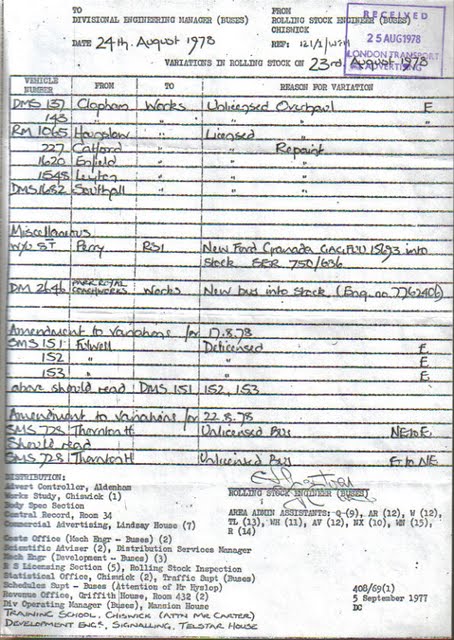 TO FROM
DIVISIONAL ENGINEERING MANAGER (BUSES) ROLLING STOCK ENGINEER (BUSES)
CHISWICK
DATE 24th. August 1978 REF:
RECEIVED
25 AUG 1978
LONDON TRANSPORT
ADVERTISING
VARIATIONS IN ROLLING STOCK ON 23rd August 1978
VEHICLE NUMBER FROM TO REASON FOR VARIATION
DMS 137 Clapham Works Unlicensed Overhaul E
143 " " " "
RM 1065 Hounslow " Licensed "
227 Catford " " Repaint
1620 Enfield " " "
1548 Leyton " " "
DMS 1682 Southall " " "
Miscellaneous
Perry RS1 New Ford Granada into
stock SER 750/636
DM 2646 PARK ROYAL COACHWORKS Works New bus into stock (Eng. no. 7762406)
Amendment to Variations for 17.8.78
SMS 151 Fulwell Delicensed E
152 " " E
153 " " E
above should read DMS 151, 152, 153
Amendment to Variations for 22.8.78
SMS 728 Thornton H Unlicensed Bus NE to E
Should read
SMS 728 Thornton H Unlicensed Bus E to NE
DISTRIBUTION:
Advert Controller, Aldenham
Works Study, Chiswick (1)
Body Spec Section
Central Record, Room 34
Commercial Advertising, Lindsay House (7)
Costs Office (Mech Engr - Buses) (2)
Scientific Adviser (2), Distribution Services Manager
Mech Engr (Development - Buses) (3)
R S Licensing Section (5), Rolling Stock Inspection
Statistical Office, Chiswick (2), Traffic Supt (Buses)
Schedules Supt - Buses (Attention of Mr Hyslop)
Revenue Office, Griffith House, Room 432 (2)
Div Operating Manager (Buses), Mansion House
TRAINING SCHOOL, CHISWICK (ATTN MR CARTER)
DEVELOPMENT ENGR, SIGNALLING, TELSTAR HOUSE
ROLLING STOCK ENGINEER (BUSES)
AREA ADMIN ASSISTANTS: Q (9), AR (12), W (12),
TL (13), WH (11), AV (12), NX (10), WN (15),
R (14)
408/69(1)
5 September 1977
DC